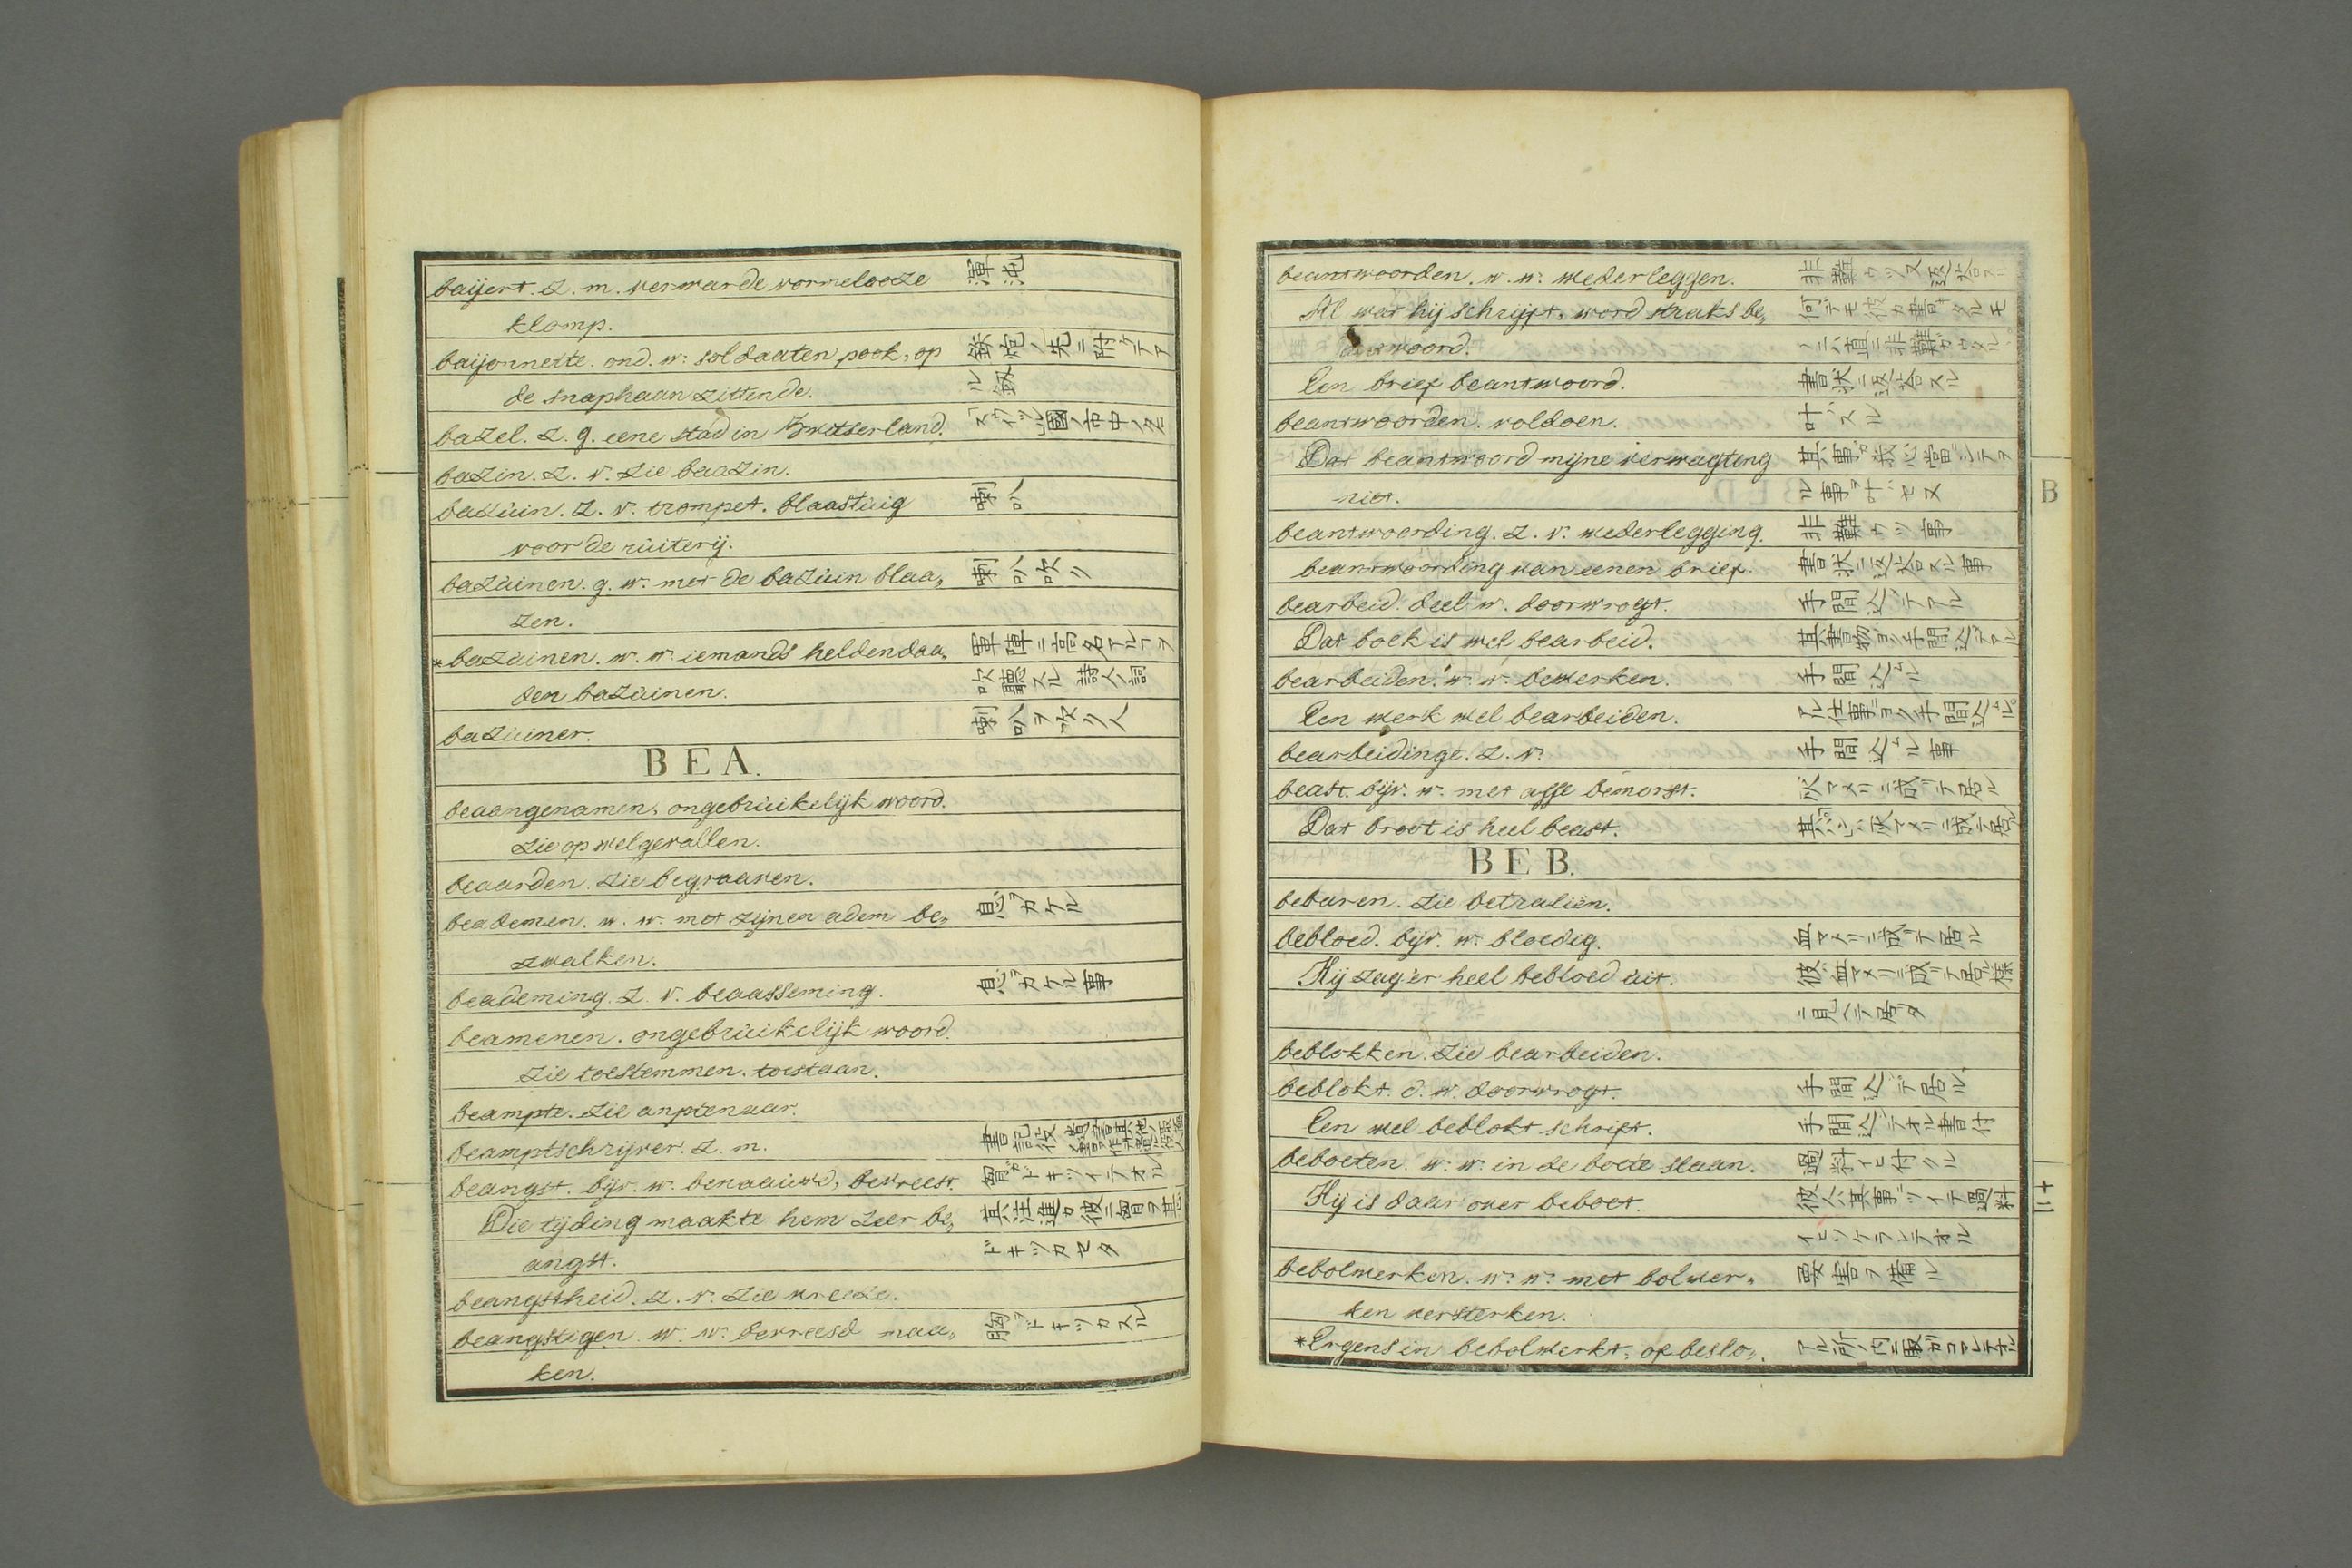 baijert. z. m. verwarde vormelooze 渾沌
klomp.
baijonnette. ond. w. soldaaten pook, op 鉄炮ノ先ニ附ケテア
de snaphaan zittende. ル釼
bazel. z. g. eene stad in Zwitserland. 国ノ市中ノ名
bazin. z. v. zie baazin.
bazùin. z. v. trompet. blaastùig 喇叭
voor de rùiterij.
bazùinen. g. w. met de bazùin blaa„ 喇叭吹ク
zen.
*bazùinen. w. w. iemands heldendaa„ 軍陣ニ高名アルヲ
den bazùinen. 吹聴スル 詩人ノ詞
bazùiner. 喇叭ヲ吹ク人
BEA.
beaangenamen, ongebrùikelijk woord.
zie op welgevallen.
beaarden. zie begraaven.
beademen. w. w. met zijnen adem be„ 息ヲカケル
zwalken.
beademing. z. v. beaasseming. 息ヲカケル事
beamenen. ongebrùikelijk woord.
zie toestemmen. toestaan.
beampte. zie amptenaar.
beamptschrijver. z. m. 書記役
beangst. bijv. w. benaauwd, bevreest. 胸ガドキツイテオル
Die tijding maakte hem zeer be„ 其注進カ彼ニ胸ヲ甚
angst. ドキツカセタ
beangstheid. z. v. zie vreeze.
beangstigen. w. w. bevreesd maa„ 胸ヲドキツカスル
ken.
beantwoorden. w. w. wederleggen. 非難ウツ 又返答スル
Al wat hij schrijft, word straks be„ 何デモ彼カ書キタルモ
antwoord. ノニハ直ニ非難ガウタル
Een brief beantwoord. 書状ニ返答スル
beantwoorden. voldoen. 叶ハスル
Dat beantwoord mijne verwagting 其事ガ我心当シテヲ
niet. ル事ヲ叶ハセヌ
beantwoording. z. v. wederlegging. 非難ウツ事
beantwoording van eenen brief. 書状ニ返答スル事
bearbeid. deel w. doorwrogt. 手間込ンテアル
Dat boek is wel bearbeid. 其書物ヨク手間込ンデアル
bearbeiden. w. w. bewerken. 手間込ムル
Een werk wel bearbeiden. アル仕事ヨク手間込ムル
bearbeidinge. z. v. 手間込ムル事
beast. bijv. w. met asse bemorst. 灰マメリニ成リテ居ル
Dat broot is heel beast.
BEB.
bebaren. zie betraliën.
bebloed. bijv. w. bloedig. 血マメリニ成リテ居ル
Hij zag'er heel bebloed ùit. 彼ハ血マメリニ成リテ居ル様
ニ見ヘテ居タ
beblokken. zie bearbeiden.
beblokt. d. w. doorwrogt. 手間込ンテ居ル
Een wel beblokt schrift. 手間込ンテオル書付
beboeten. w. w. in de boete slaan. 過料イヒ付クル
Hij is daar over beboet. 彼人ハ其事ニツイテ過料
イヒツケラレテオル
bebolwerken. w. w. met bolwer„ 要害ヲ備ル
ken versterken.
*Ergens in bebolwerkt, of beslo„ アル所ノ内ニ
B